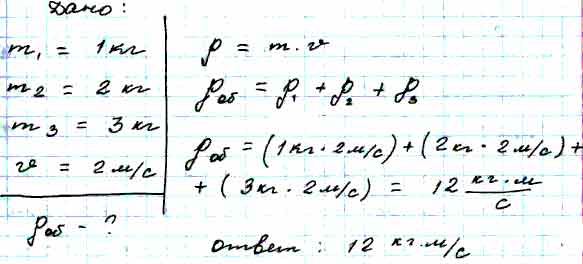 Дано:
m₁ = 1 кг
m₂ = 2 кг
m₃ = 3 кг
v = 2 м/с
pоб - ?
p = m · v
pоб = p₁ + p₂ + p₃
pоб = (1кг · 2м/с) + (2кг · 2м/с) +
+ (3кг · 2м/с) = 12 кг·м/с
ответ: 12 кг·м/с